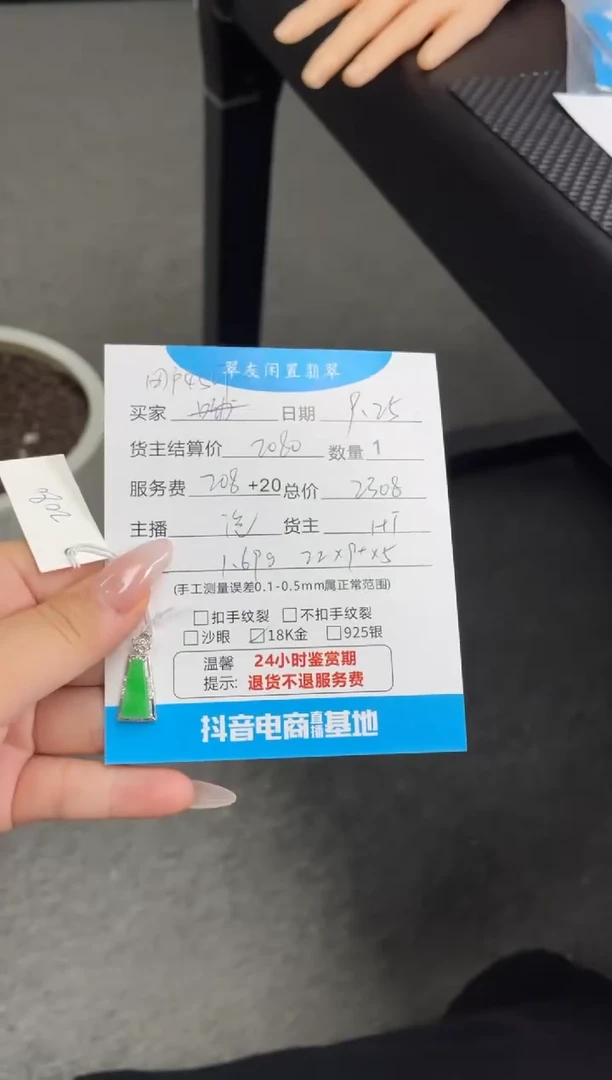 翠友闲置翡翠
买家 日期 9.25
货主结算价 2080 数量 1
服务费 208 +20 总价 2308
主播 货主 HT
1.69g 22×9+×5
(手工测量误差0.1-0.5mm属正常范围)
□扣手纹裂 □不扣手纹裂
□沙眼 ☑18K金 □925银
温馨 24小时鉴赏期
提示: 退货不退服务费
抖音电商直播基地